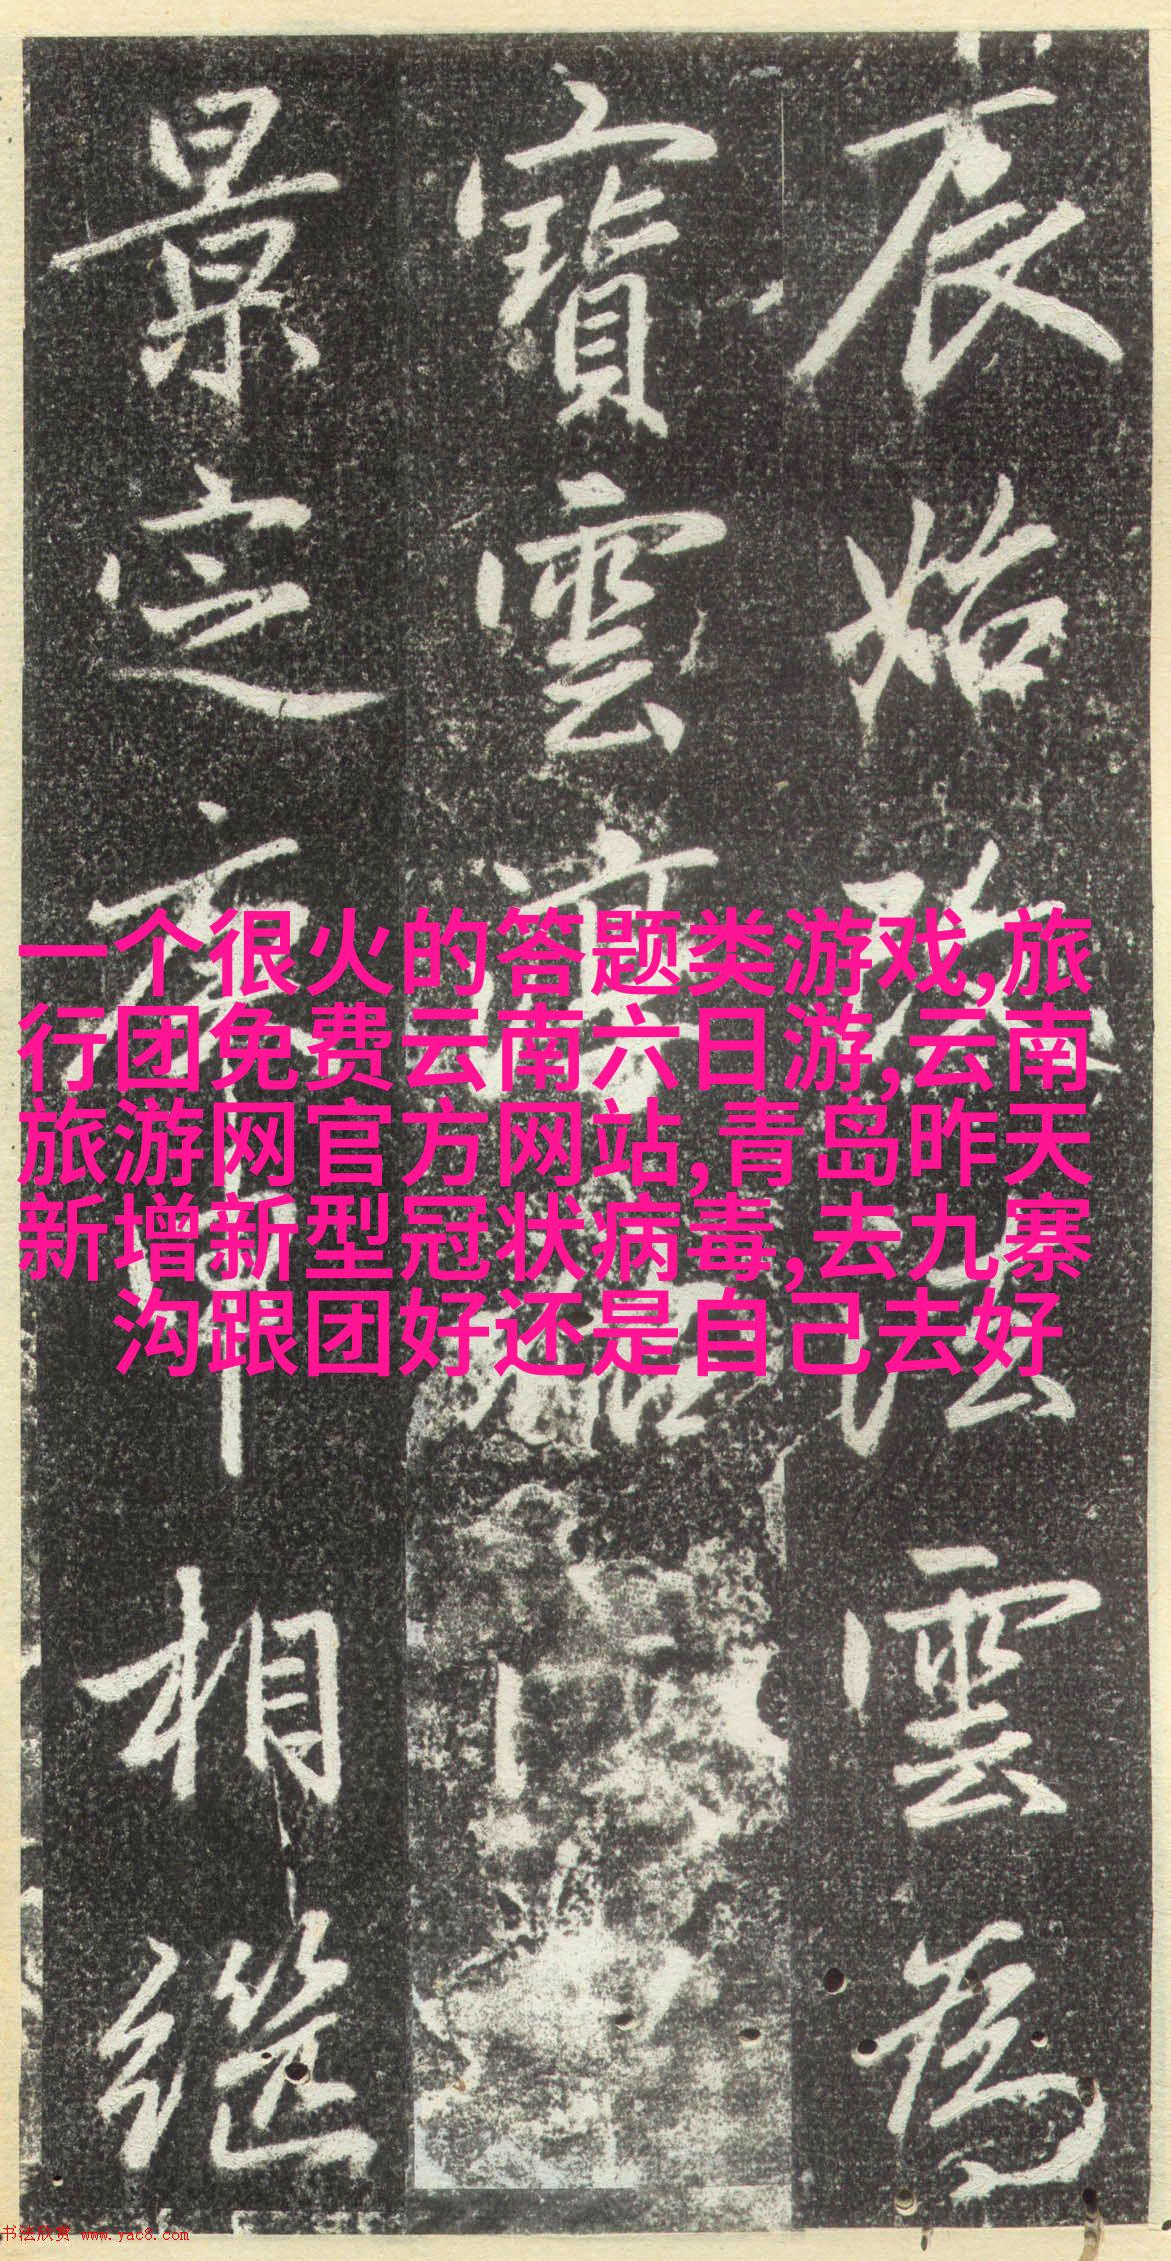 辰始法雲為
寶雲
景定相繼
一个很火的答题类游戏,旅
行团免费云南六日游,云南
旅游网官方网站,青岛昨天
新增新型冠状病毒,去九寨
沟跟团好还是自己去好
书法欣赏 www.yac8.com